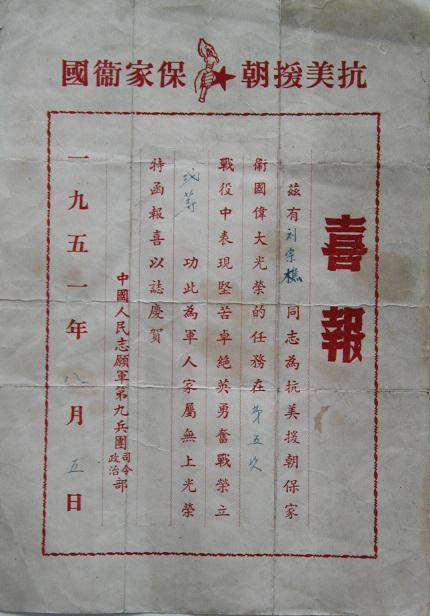 抗美援朝 保家衞國
喜報
茲有刘宗樵同志為抗美援朝保家
衛國偉大光榮的任務在第五次
戰役中表現堅苦卓絕英勇奮戰榮立
等 功此為軍人家屬無上光榮
特函報喜以誌慶賀
中國人民志願軍第九兵團司令政治部
一九五一年八月五日